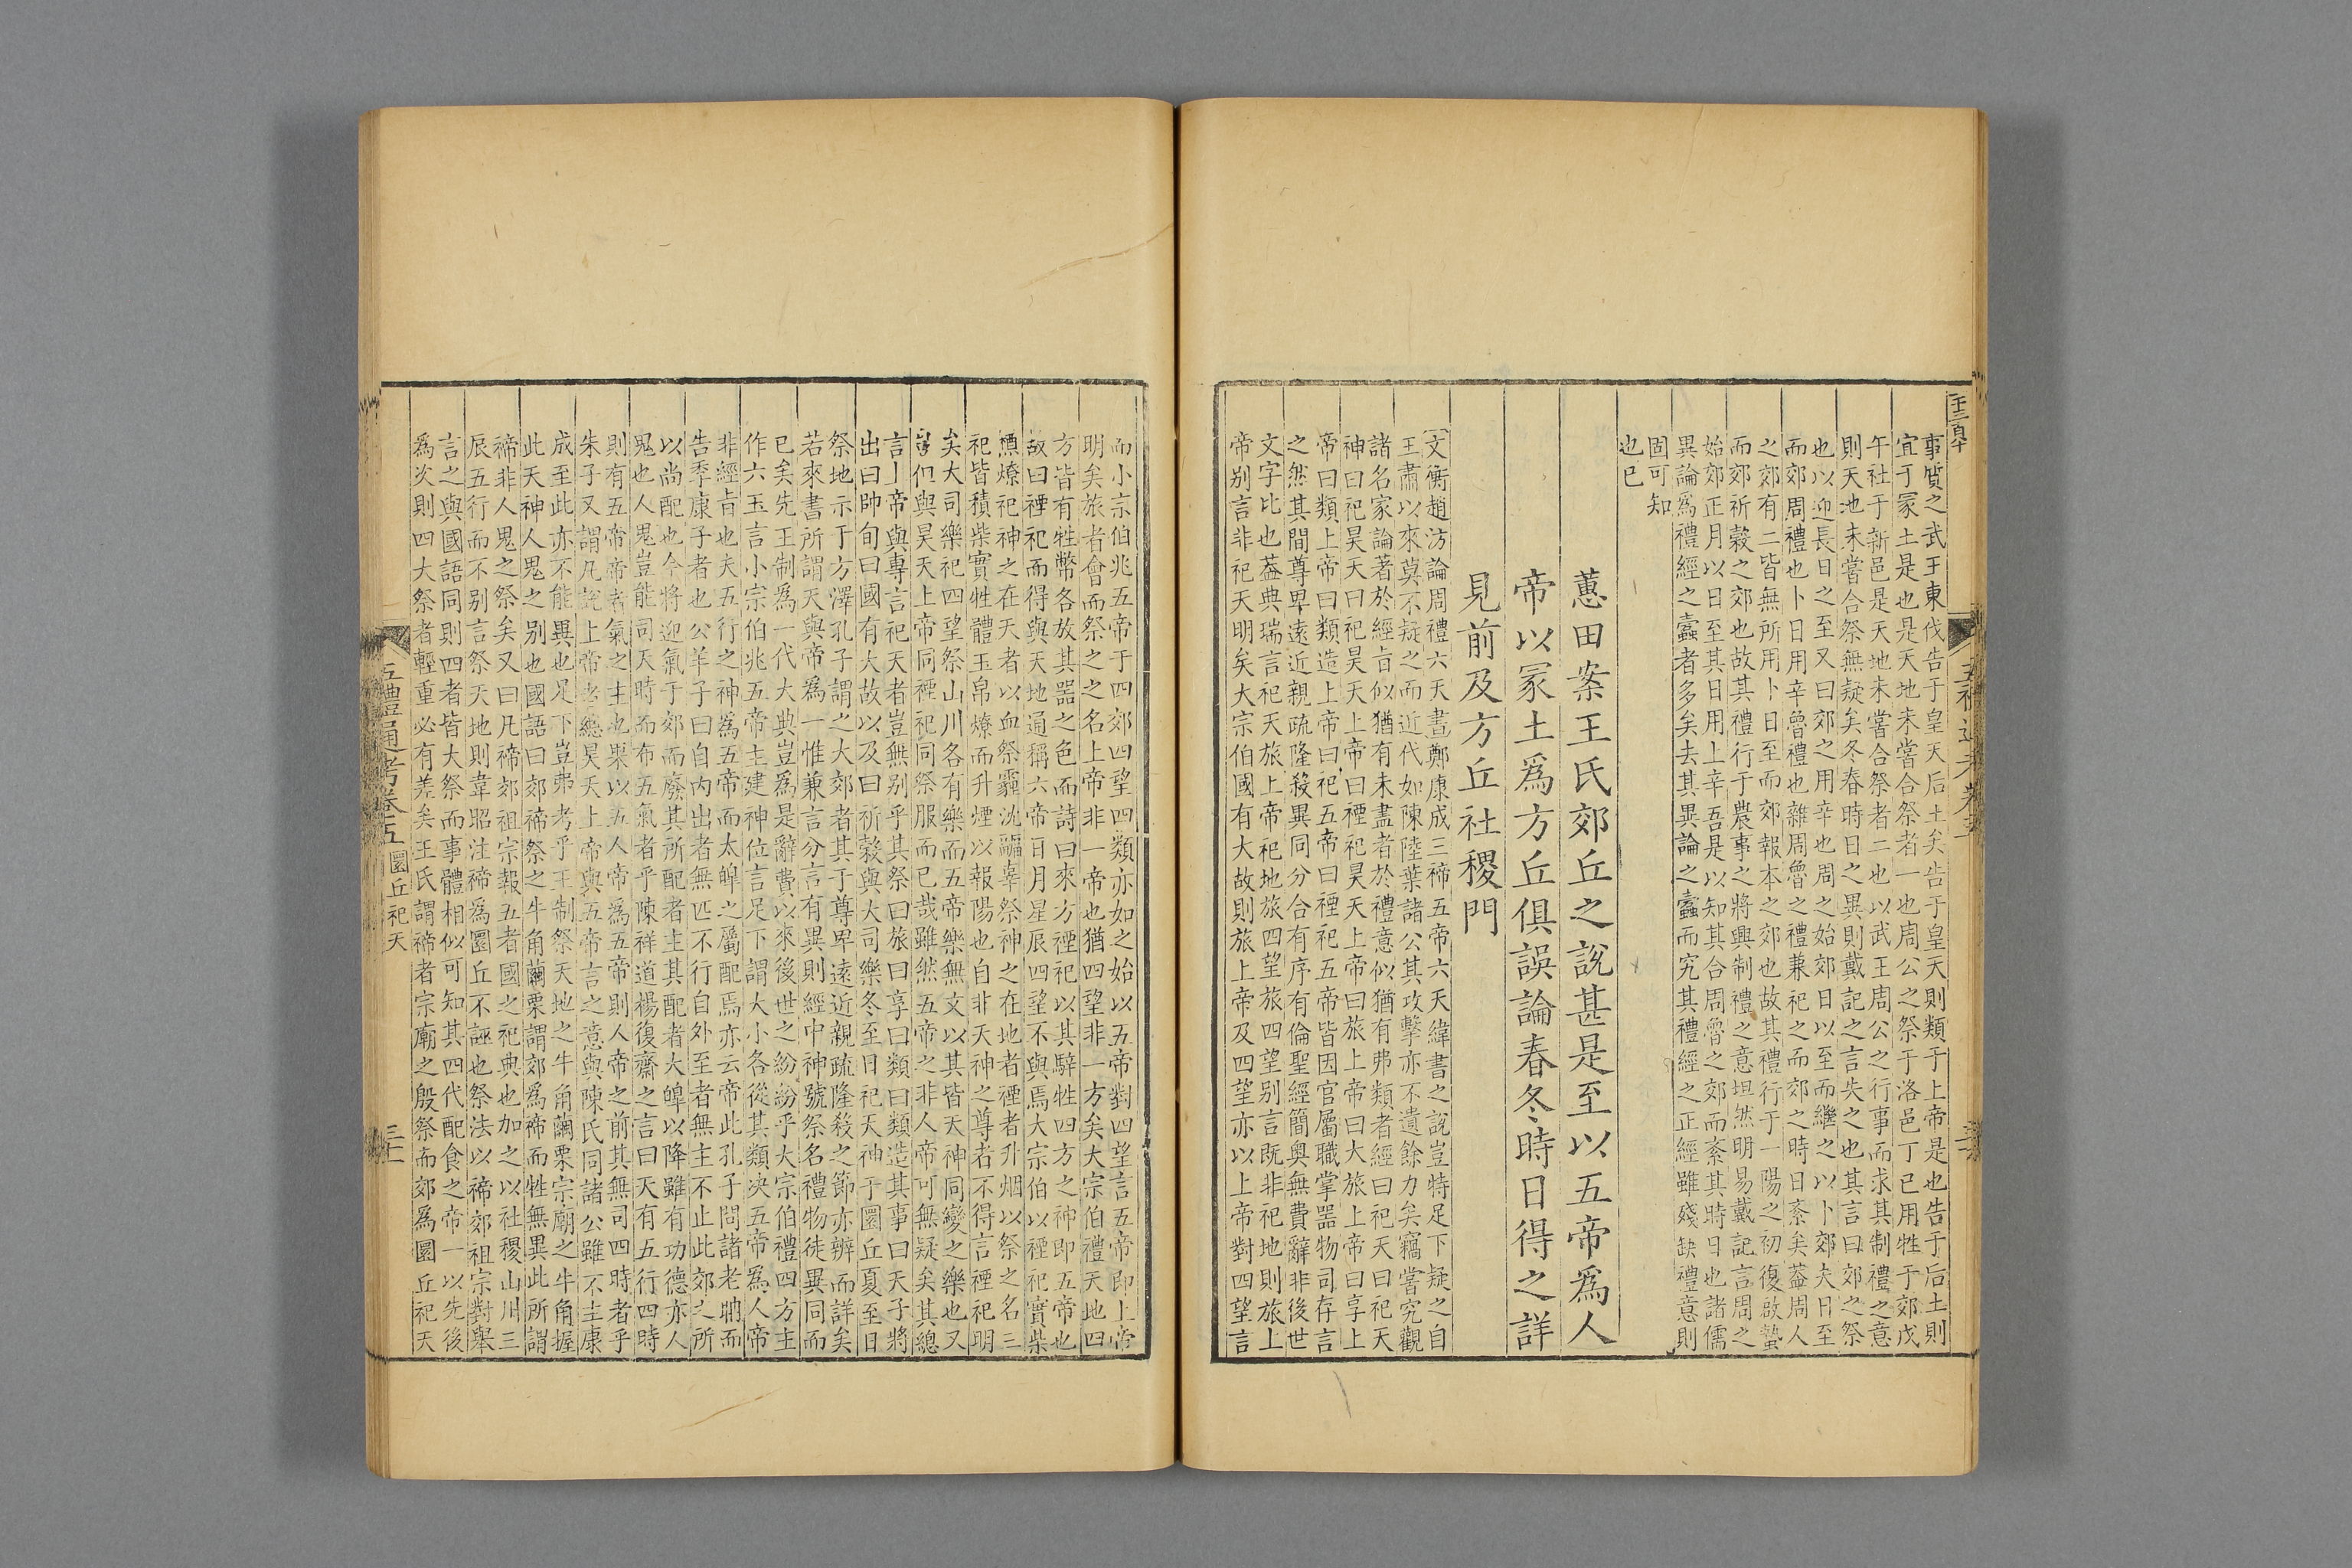 事質之武王東伐告于皇天后土矣告于皇天則類于上帝是也告于后土則
宜于冢土是也是天地未嘗合祭者一也周公之祭于洛邑丁巳用牲于郊戊
午社于新邑是天地未嘗合祭者二也以武王周公之行事而求其制禮之意
則天地未嘗合祭無疑矣冬春時日之異則戴記之言失之也其言曰郊之祭
也以迎長日之至又曰郊之用辛也周之始郊日以至而繼之以卜郊夫日至
而郊周禮也卜日用辛魯禮也雜周魯之禮兼祀之而郊之時日紊矣葢周人
之郊有二皆無所用卜日至而郊報本之郊也故其禮行于一陽之初復啟蟄
而郊祈穀之郊也故其禮行于農事之將興制禮之意坦然明易戴記言周之
始郊正月以日至其日用上辛吾是以知其合周魯之郊而紊其時日也諸儒
異論爲禮經之蠧者多矣去其異論之蠧而究其禮經之正經雖殘缺禮意則
固可知
也已
蕙田案王氏郊丘之說甚是至以五帝爲人
帝以冢土爲方丘俱誤論春冬時日得之詳
見前及方丘社稷門
文衡趙汸論周禮六天書鄭康成三禘五帝六天緯書之說豈特足下疑之自
王肅以來莫不疑之而近代如陳陸葉諸公其攻擊亦不遺餘力矣竊嘗究觀
諸名家論著於經旨似猶有未盡者於禮意似猶有弗類者經曰祀天曰祀天
神曰祀昊天曰祀昊天上帝曰禋祀昊天上帝曰旅上帝曰大旅上帝曰享上
帝曰類上帝曰類造上帝曰祀五帝曰禋祀五帝皆因官屬職掌器物司存言
之然其間尊卑遠近親疏隆殺異同分合有序有倫聖經簡奧無費辭非後世
文字比也葢典瑞言祀天旅上帝祀地旅四望旅四望别言既非祀地則旅上
帝别言非祀天明矣大宗伯國有大故則旅上帝及四望亦以上帝對四望言
而小宗伯兆五帝于四郊四望四類亦如之始以五帝對四望言五帝即上帝
明矣旅者會而祭之之名上帝非一帝也猶四望非一方矣大宗伯禮天地四
方皆有牲幣各放其器之色而詩曰來方禋祀以其騂牲四方之神即五帝也
故曰禋祀而得與天地通稱六帝日月星辰四望不與焉大宗伯以禋祀實柴
槱燎祀神之在天者以血祭霾沈疈辜祭神之在地者禋者升烟以祭之名三
祀皆積柴實牲體玉帛燎而升煙以報陽也自非天神之尊者不得言禋祀明
矣大司樂祀四望祭山川各有樂而五帝樂無文以其皆天神同變之樂也又
但與昊天上帝同禋祀同祭服而已哉雖然五帝之非人帝可無疑矣其總
言上帝與專言祀天者豈無别乎其祭曰旅曰享曰類曰類造其事曰天子將
出曰帥甸曰國有大故以及曰祈榖與大司樂冬至日祀天神于圜丘夏至日
祭地示于方澤孔子謂之大郊者其于尊卑遠近親疏隆殺之節亦辨而詳矣
若來書所謂天與帝爲一惟兼言分言有異則經中神號祭名禮物徒異同而
已矣先王制爲一代大典豈爲是辭費以來後世之紛紛乎大宗伯禮四方主
作六玉言小宗伯兆五帝主建神位言足下謂大小各從其類决五帝爲人帝
非經旨也夫五行之神爲五帝而太皥之屬配焉亦云帝此孔子問諸老聃而
告季康子者也公羊子曰自內出者無匹不行自外至者無主不止此郊之所
以尚配也今將迎氣于郊而廢其所配者主其配者大皥以降雖有功德亦人
鬼也人鬼豈能司天時而布五氣者乎陳祥道楊復齋之言曰天有五行四時
則有五帝帝者氣之主也果以五人帝爲五帝則人帝之前其無司四時者乎
朱子又謂凡說上帝者總昊天上帝與五帝言之意與陳氏同諸公雖不主康
成至此亦不能異也足下豈弗考乎王制祭天地之牛角繭栗宗廟之牛角握
此天神人鬼之别也國語曰郊禘祭之牛角繭栗謂郊爲禘而牲無異此所謂
禘非人鬼之祭矣又曰凡禘郊祖宗報五者國之祀典也加之以社稷山川三
辰五行而不别言祭天地則韋昭注禘爲圜丘不誣也祭法以禘郊祖宗對舉
言之與國語同則四者皆大祭而事體相似可知其四代配食之帝一以先後
爲次則四大祭者輕重必有差矣王氏謂禘者宗廟之殷祭而郊爲圜丘祀天
五禮通考卷五
圜丘祀天